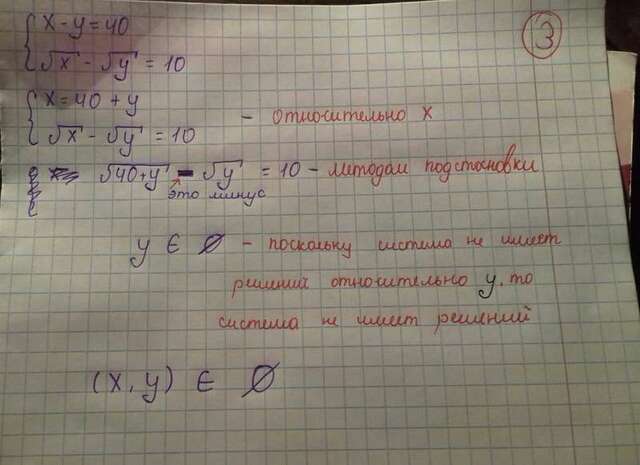 x - y = 40
√x - √y = 10
3
x = 40 + y
√x - √y = 10
- относительно x
√40+y - √y = 10 - методам подстановки
это минус
y ∈ ∅ - поскольку система не имеет
решений относительно y, то
система не имеет решений
(x, y) ∈ ∅